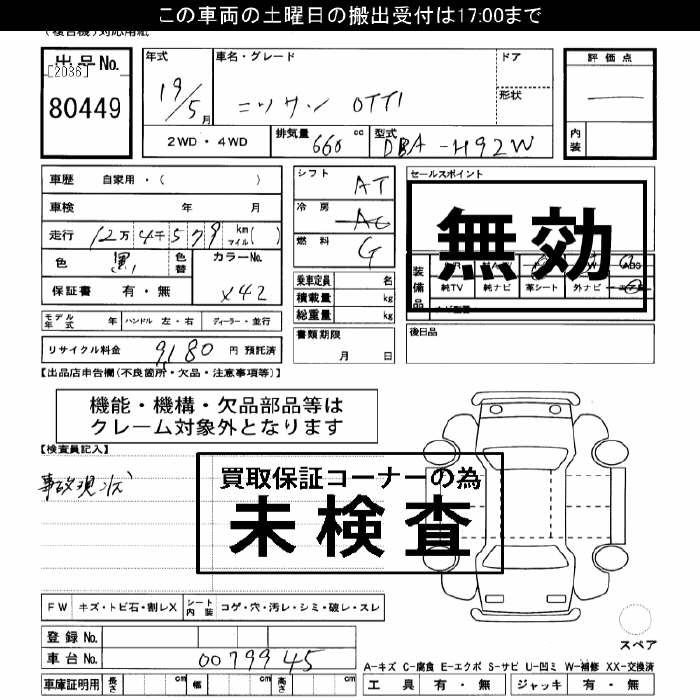 この車両の土曜日の搬出受付は17:00まで
(複合機)対応用紙
出品No.
[2036]
80449
年式
19/5月
車名・グレード
ニッサン OTTI
ドア
形状
評価点
—
内装
2WD・4WD
排気量 660 cc
型式 DBA-H92W
車歴 自家用・( )
車検 年 月
走行 12万4千579 km マイル( )
色 黒 色替
カラーNo. X42
保証書 有・無
シフト AT
冷房 AC
燃料 G
乗車定員 名
積載量 kg
総重量 kg
書類期限
月 日
セールスポイント
無効
装備品
ABS
純TV 純ナビ 革シート 外ナビ
後日品
モデル年式 年 ハンドル 左・右 ディーラー・並行
リサイクル料金 9180 円 預託済
【出品店申告欄(不良箇所・欠品・注意事項等)】
機能・機構・欠品部品等は
クレーム対象外となります
【検査員記入】
事故現状
買取保証コーナーの為
未検査
FW キズ・トビ石・割レX シート内装 コゲ・穴・汚レ・シミ・破レ・スレ
スペア
登録No.
車台No. 0079945
車庫証明用 長さ cm 幅 cm 高さ cm
A-キズ C-腐食 E-エクボ S-サビ U-凹ミ W-補修 XX-交換済
工具 有・無 ジャッキ 有・無